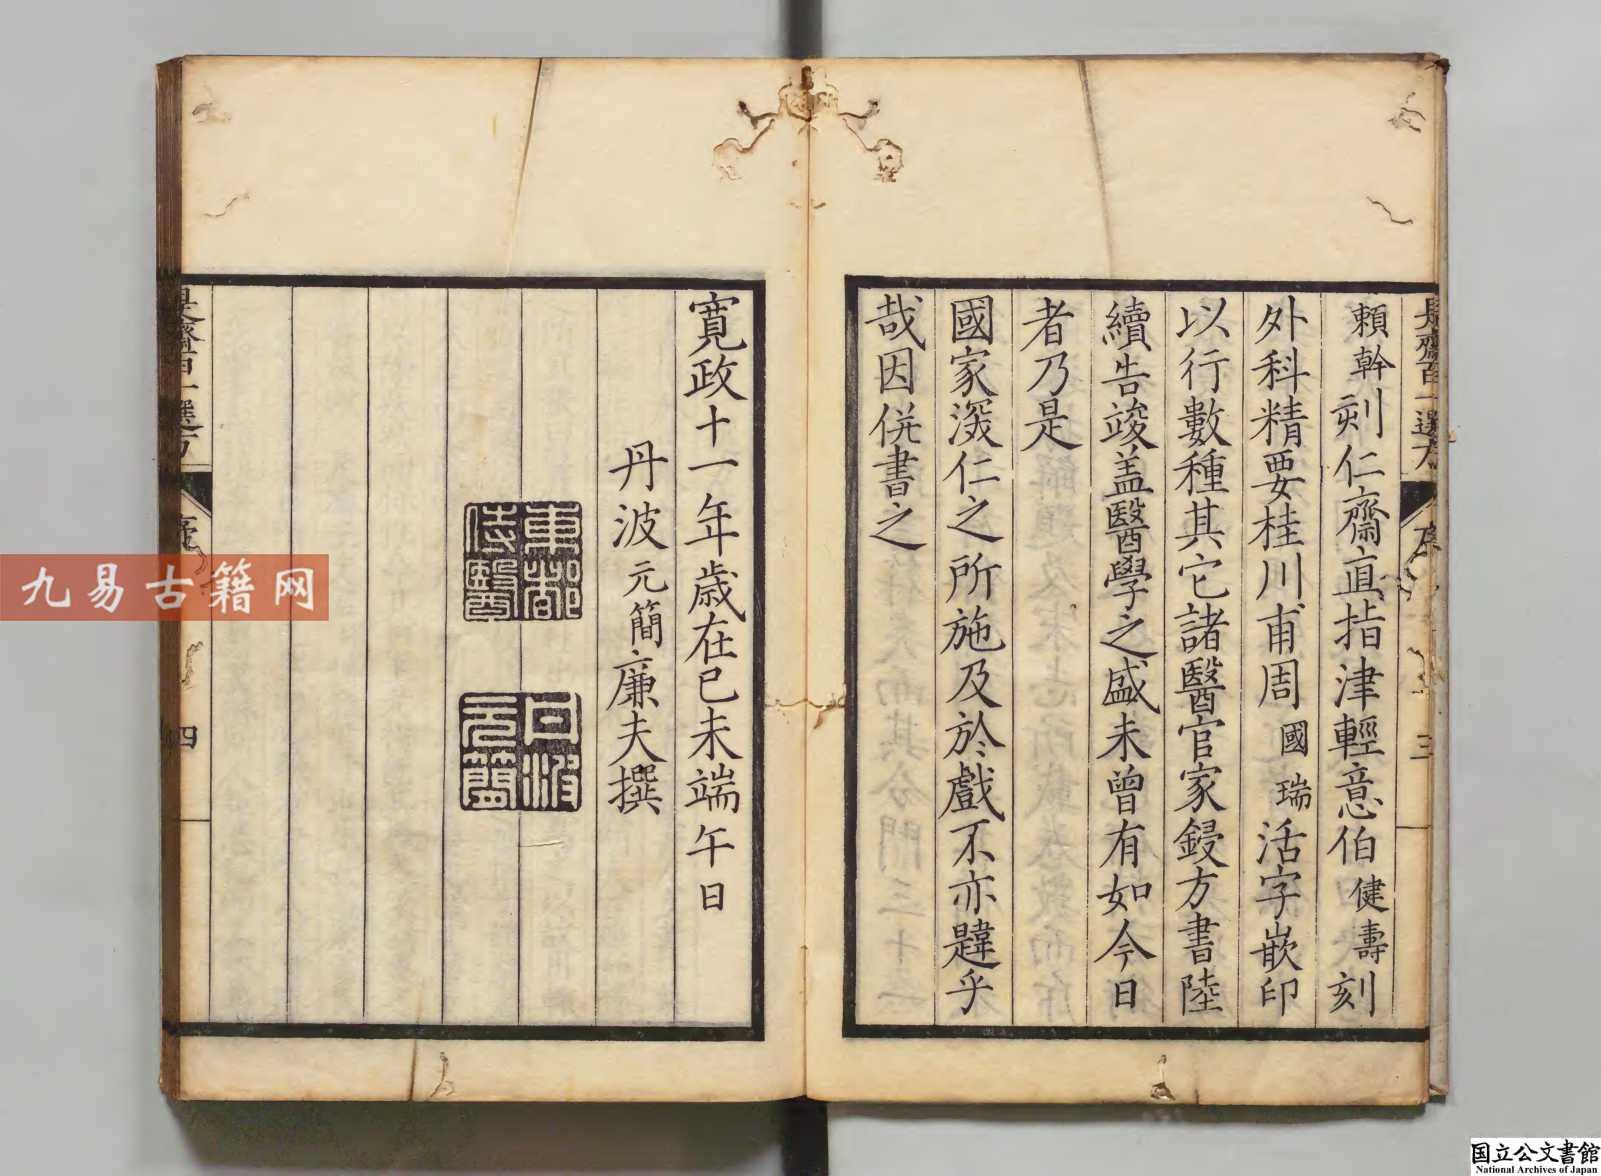 是齋百一選方
序
三
頼幹刻仁齋直指津輕意伯健壽刻
外科精要桂川甫周國瑞活字嵌印
以行數種其它諸醫官家鋟方書陸
續告竣盖醫學之盛未曾有如今日
者乃是
國家深仁之所施及於戲不亦韙乎
哉因併書之
寛政十一年歳在己未端午日
丹波元簡廉夫撰
東都
侍醫
丹波
元簡
是齋百一選方
序
四
九易古籍网
国立公文書館
National Archives of Japan